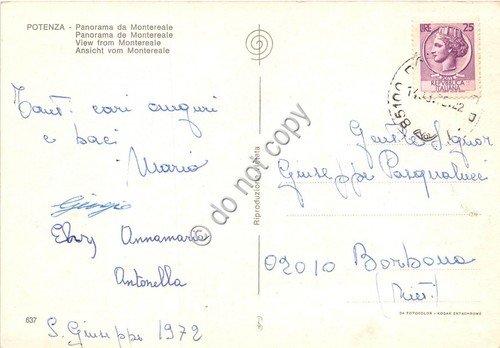 POTENZA - Panorama da Montereale
Panorama de Montereale
View from Montereale
Ansicht vom Montereale
Tanti cari auguri
e baci
Mario
Giorgio
Annamaria
Antonella
S. Giuseppe 1972
637
Riproduzione vietata
© do not copy
IRE 25
POSTE
REPUBBLICA
ITALIANA
85100
Gentile Signor
Giuseppe Pasqualucci
02010 Borbona
(Rieti)
DA FOTOCOLOR - KODAK EKTACHROME